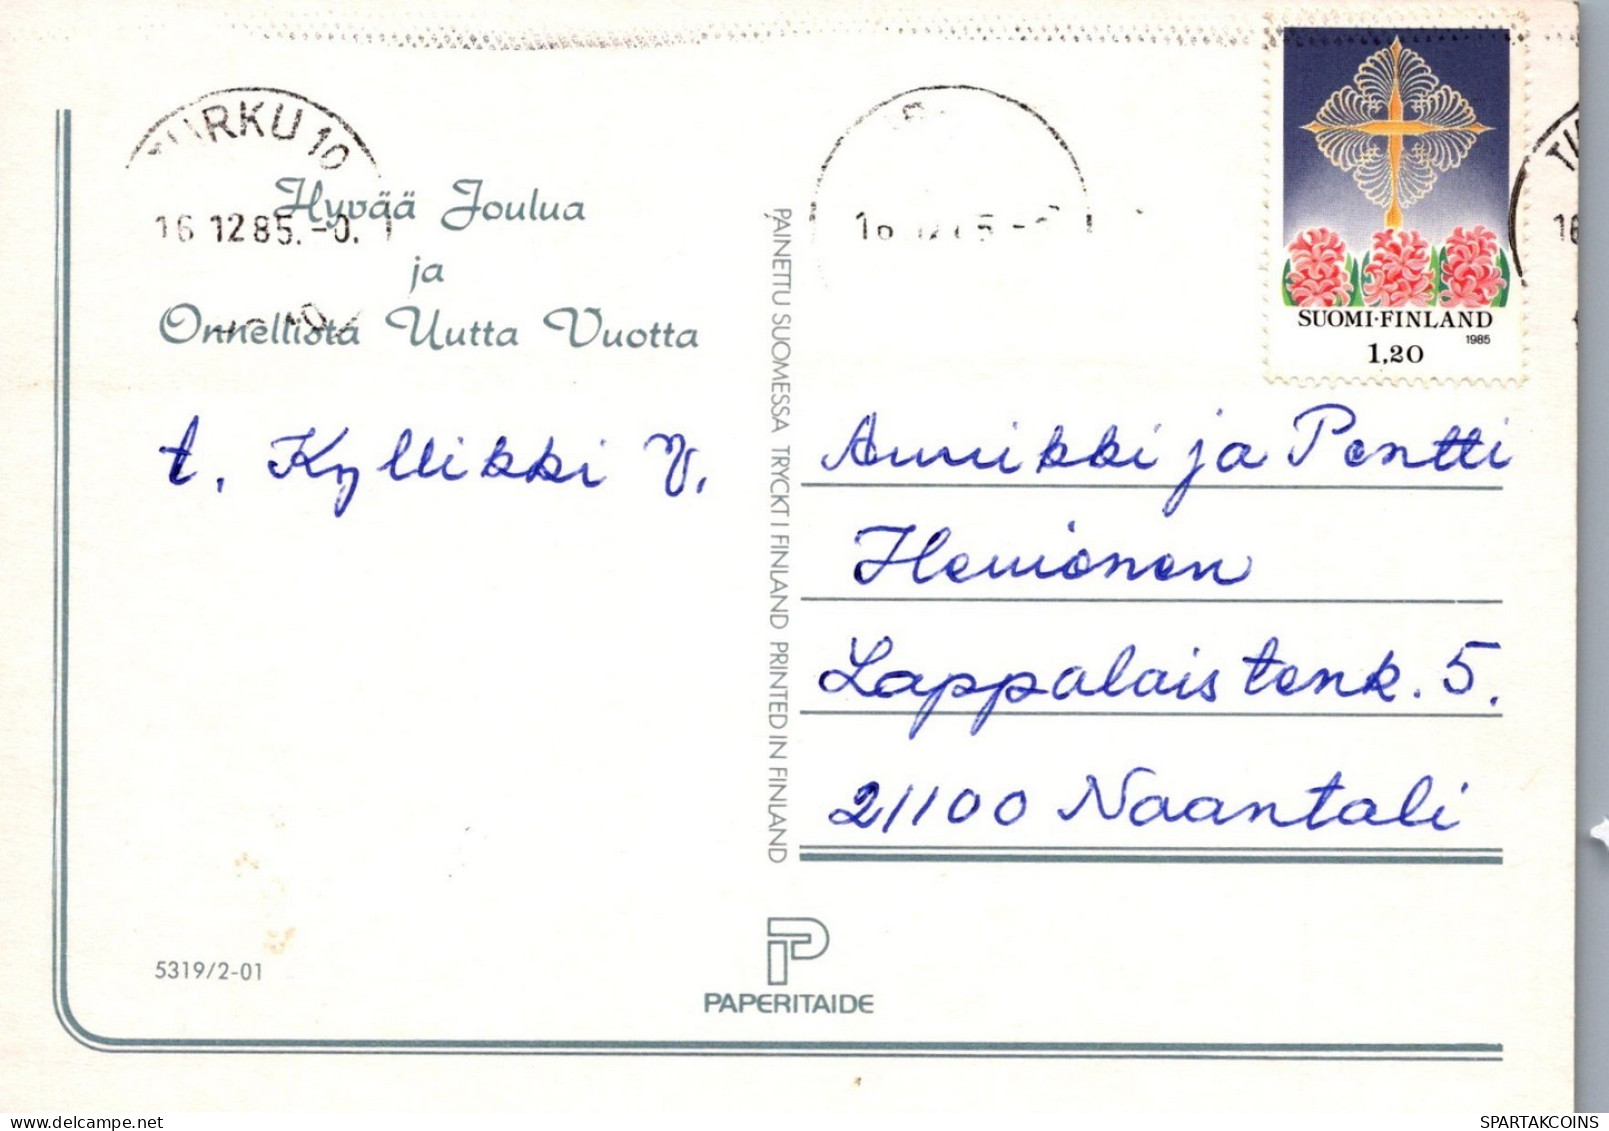 TURKU 10
16.12.85.-0.
Hyvää Joulua
ja
Onnellista Uutta Vuotta
t. Kyllikki V.
SUOMI·FINLAND
1985
1,20
Annikki ja Pentti
Henionen
Lappalaistenk. 5.
21100 Naantali
PAINETTU SUOMESSA TRYCKT I FINLAND PRINTED IN FINLAND
5319/2-01
PAPERITAIDE
https://www.delcampe.net
SPARTAKCOINS